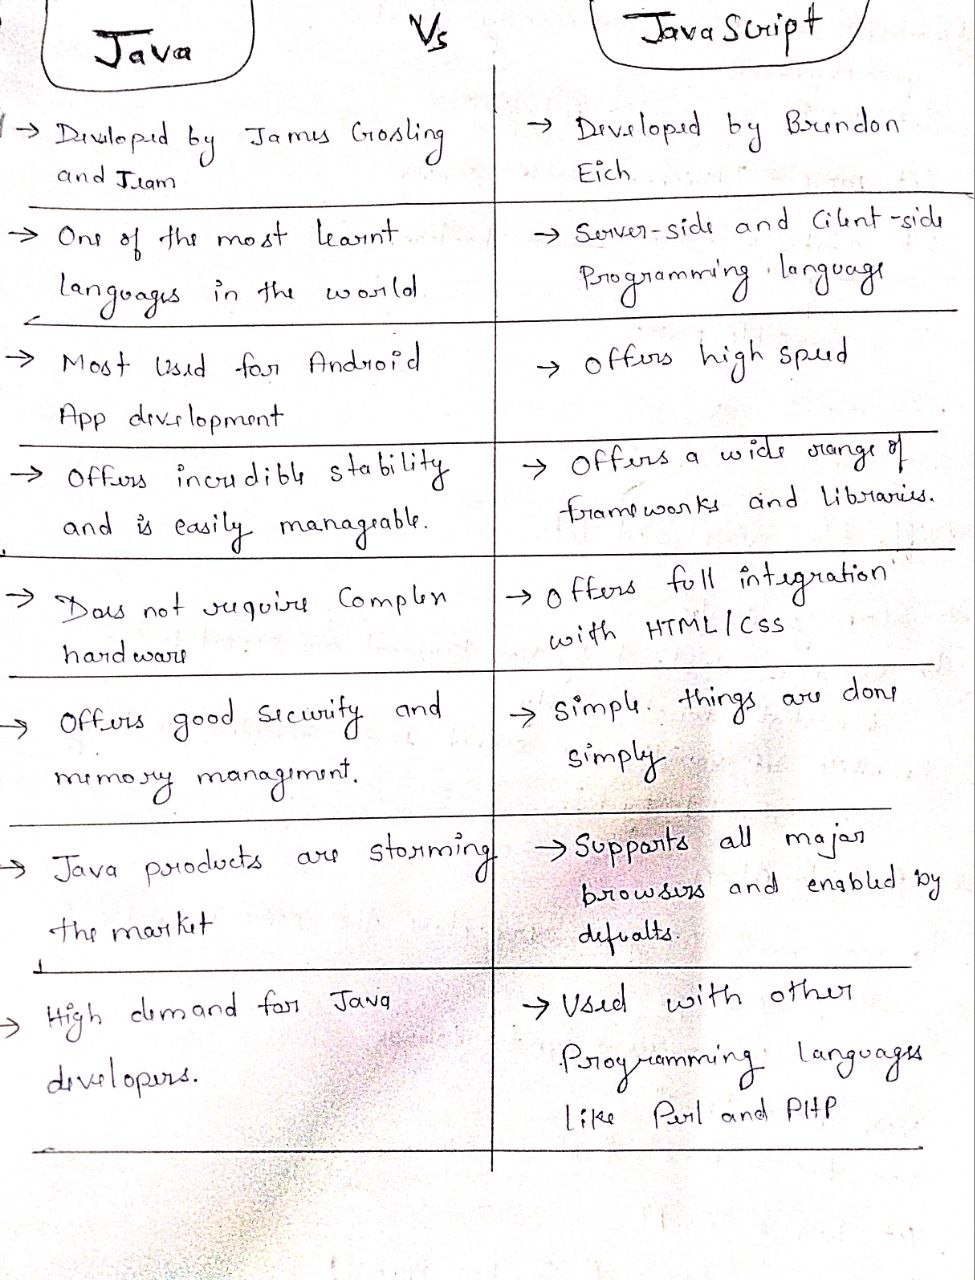 Java Vs JavaScript
→ Developed by James Gosling
and Team
→ Developed by Brendon
Eich
→ One of the most learnt
languages in the world
→ Server-side and Cilent-side
Programming language
→ Most Used for Android
App development
→ Offers high speed
→ Offers incredible stability
and is easily manageable.
→ Offers a wide range of
frameworks and libraries.
→ Does not require Complex
hardware
→ Offers full integration
with HTML/CSS
→ Offers good security and
memory management.
→ Simple things are done
simply
→ Java products are storming
the market
→ Supports all major
browsers and enabled by
defualts.
→ High demand for Java
developers.
→ Used with other
Programming languages
like Perl and PHP